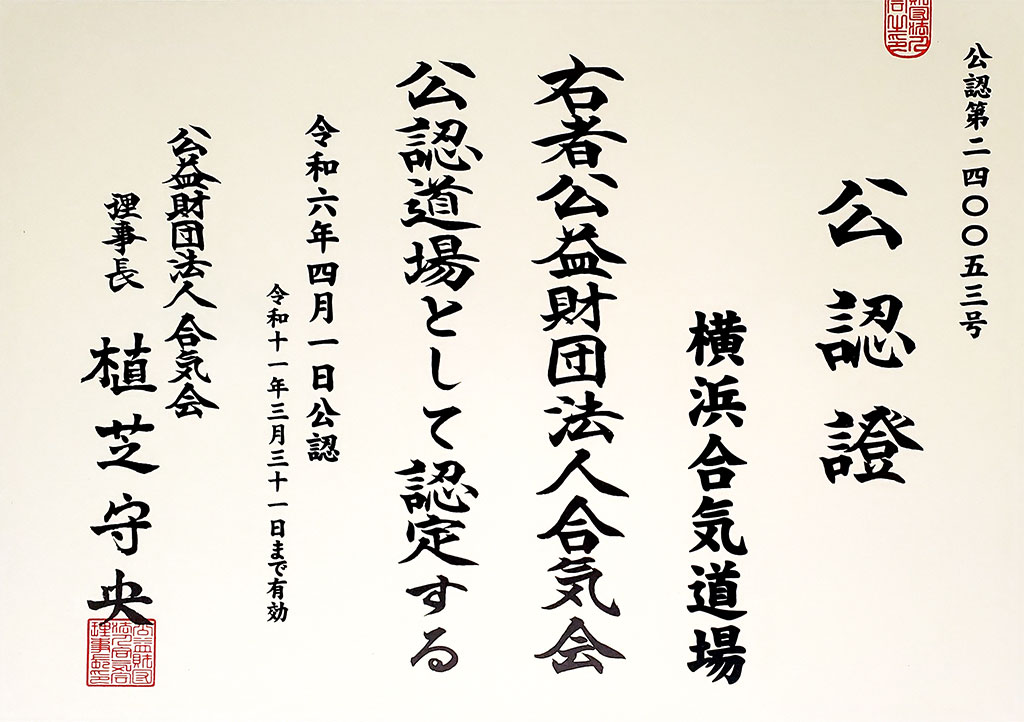 公認第二四〇〇五三号
公認證
横浜合気道場
右者公益財団法人合気会
公認道場として認定する
令和六年四月一日公認
令和十一年三月三十一日まで有効
公益財団法人合気会
理事長 植芝守央